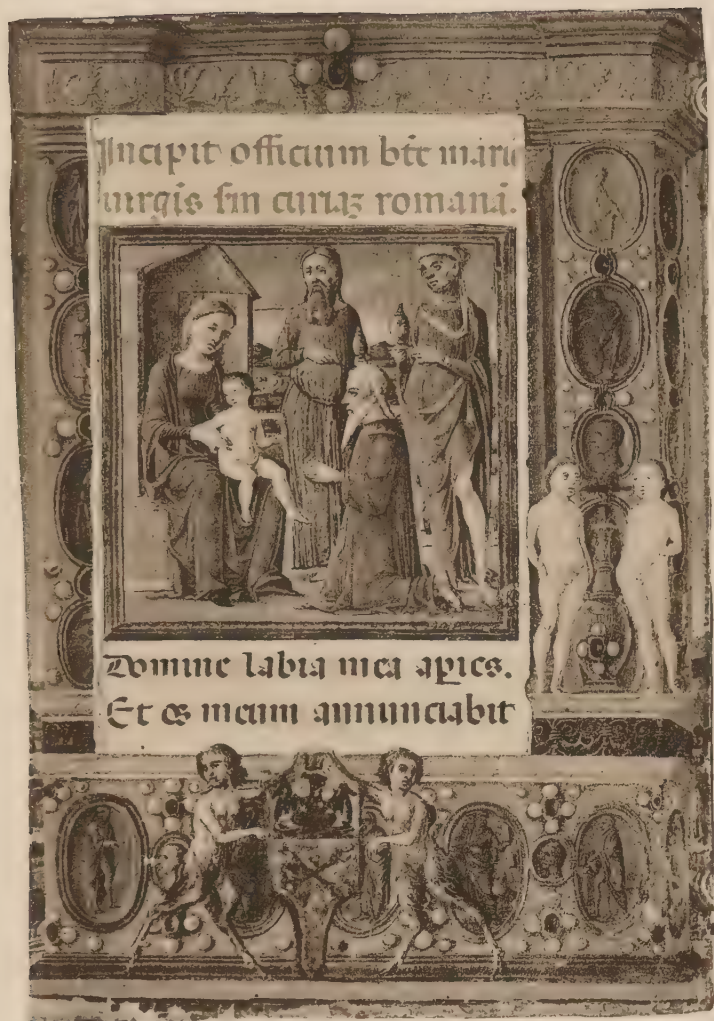 Incipit officium bt̄e marie
uirgīs s̄m curiaz romanā.
Domine labia mea apies.
Et os meum annunciabit